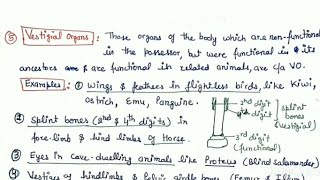 ⑤ Vestigial Organs: Those organs of the body which are non-functional
in the possessor, but were functional in its
ancestors & are functional in related animals, are c/a VO.
Examples: ① Wings & feathers in flightless birds, like Kiwi,
Ostrich, Emu, Penguine.
② Splint bones (2nd & 4th digits) in
fore-limb & hind limbs of Horse.
2nd digit
4th digit
splint
bones
(vestigial)
3rd digit
(functional)
③ Eyes in cave-dwelling animals like Proteus (Blind salamander)
④ Vestiges of hindlimbs & Pelvic girdle bones (Femur & Ilium)